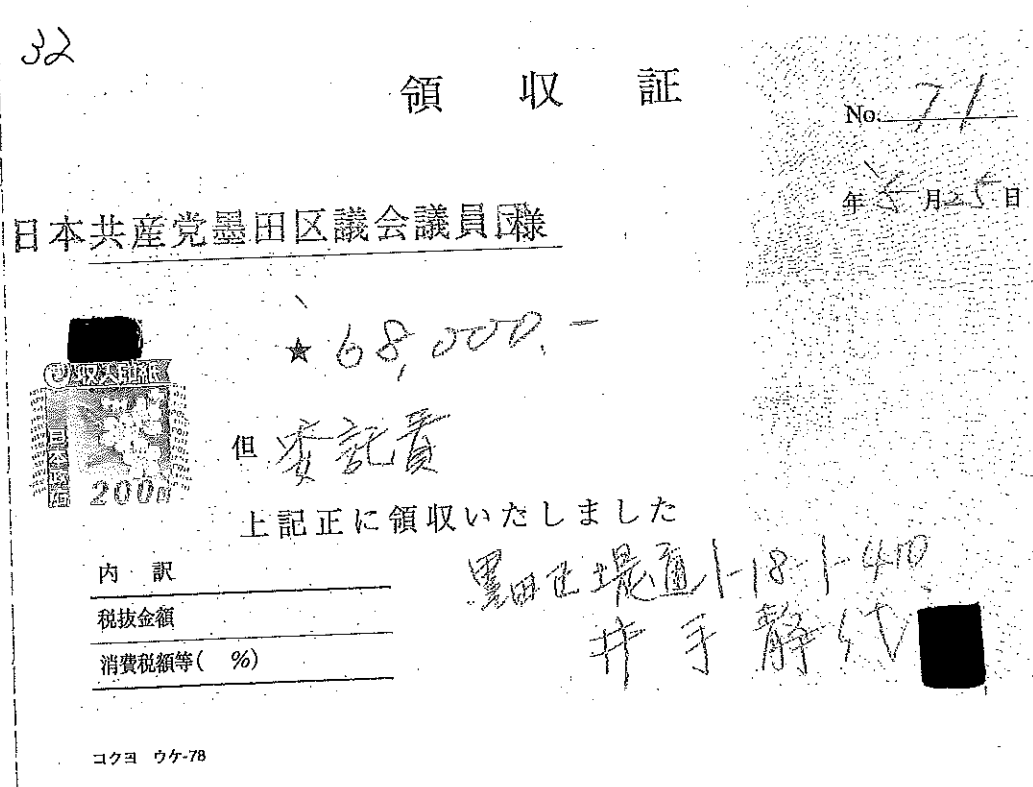 32
領収証
No. 71
年 5 月 25 日
日本共産党墨田区議会議員団様
★ 68,000.-
収入印紙
200円
但 委託費
上記正に領収いたしました
内訳
税抜金額
消費税額等( %)
墨田区堤通1-18-1-410
井手静代
コクヨ ウケ-78